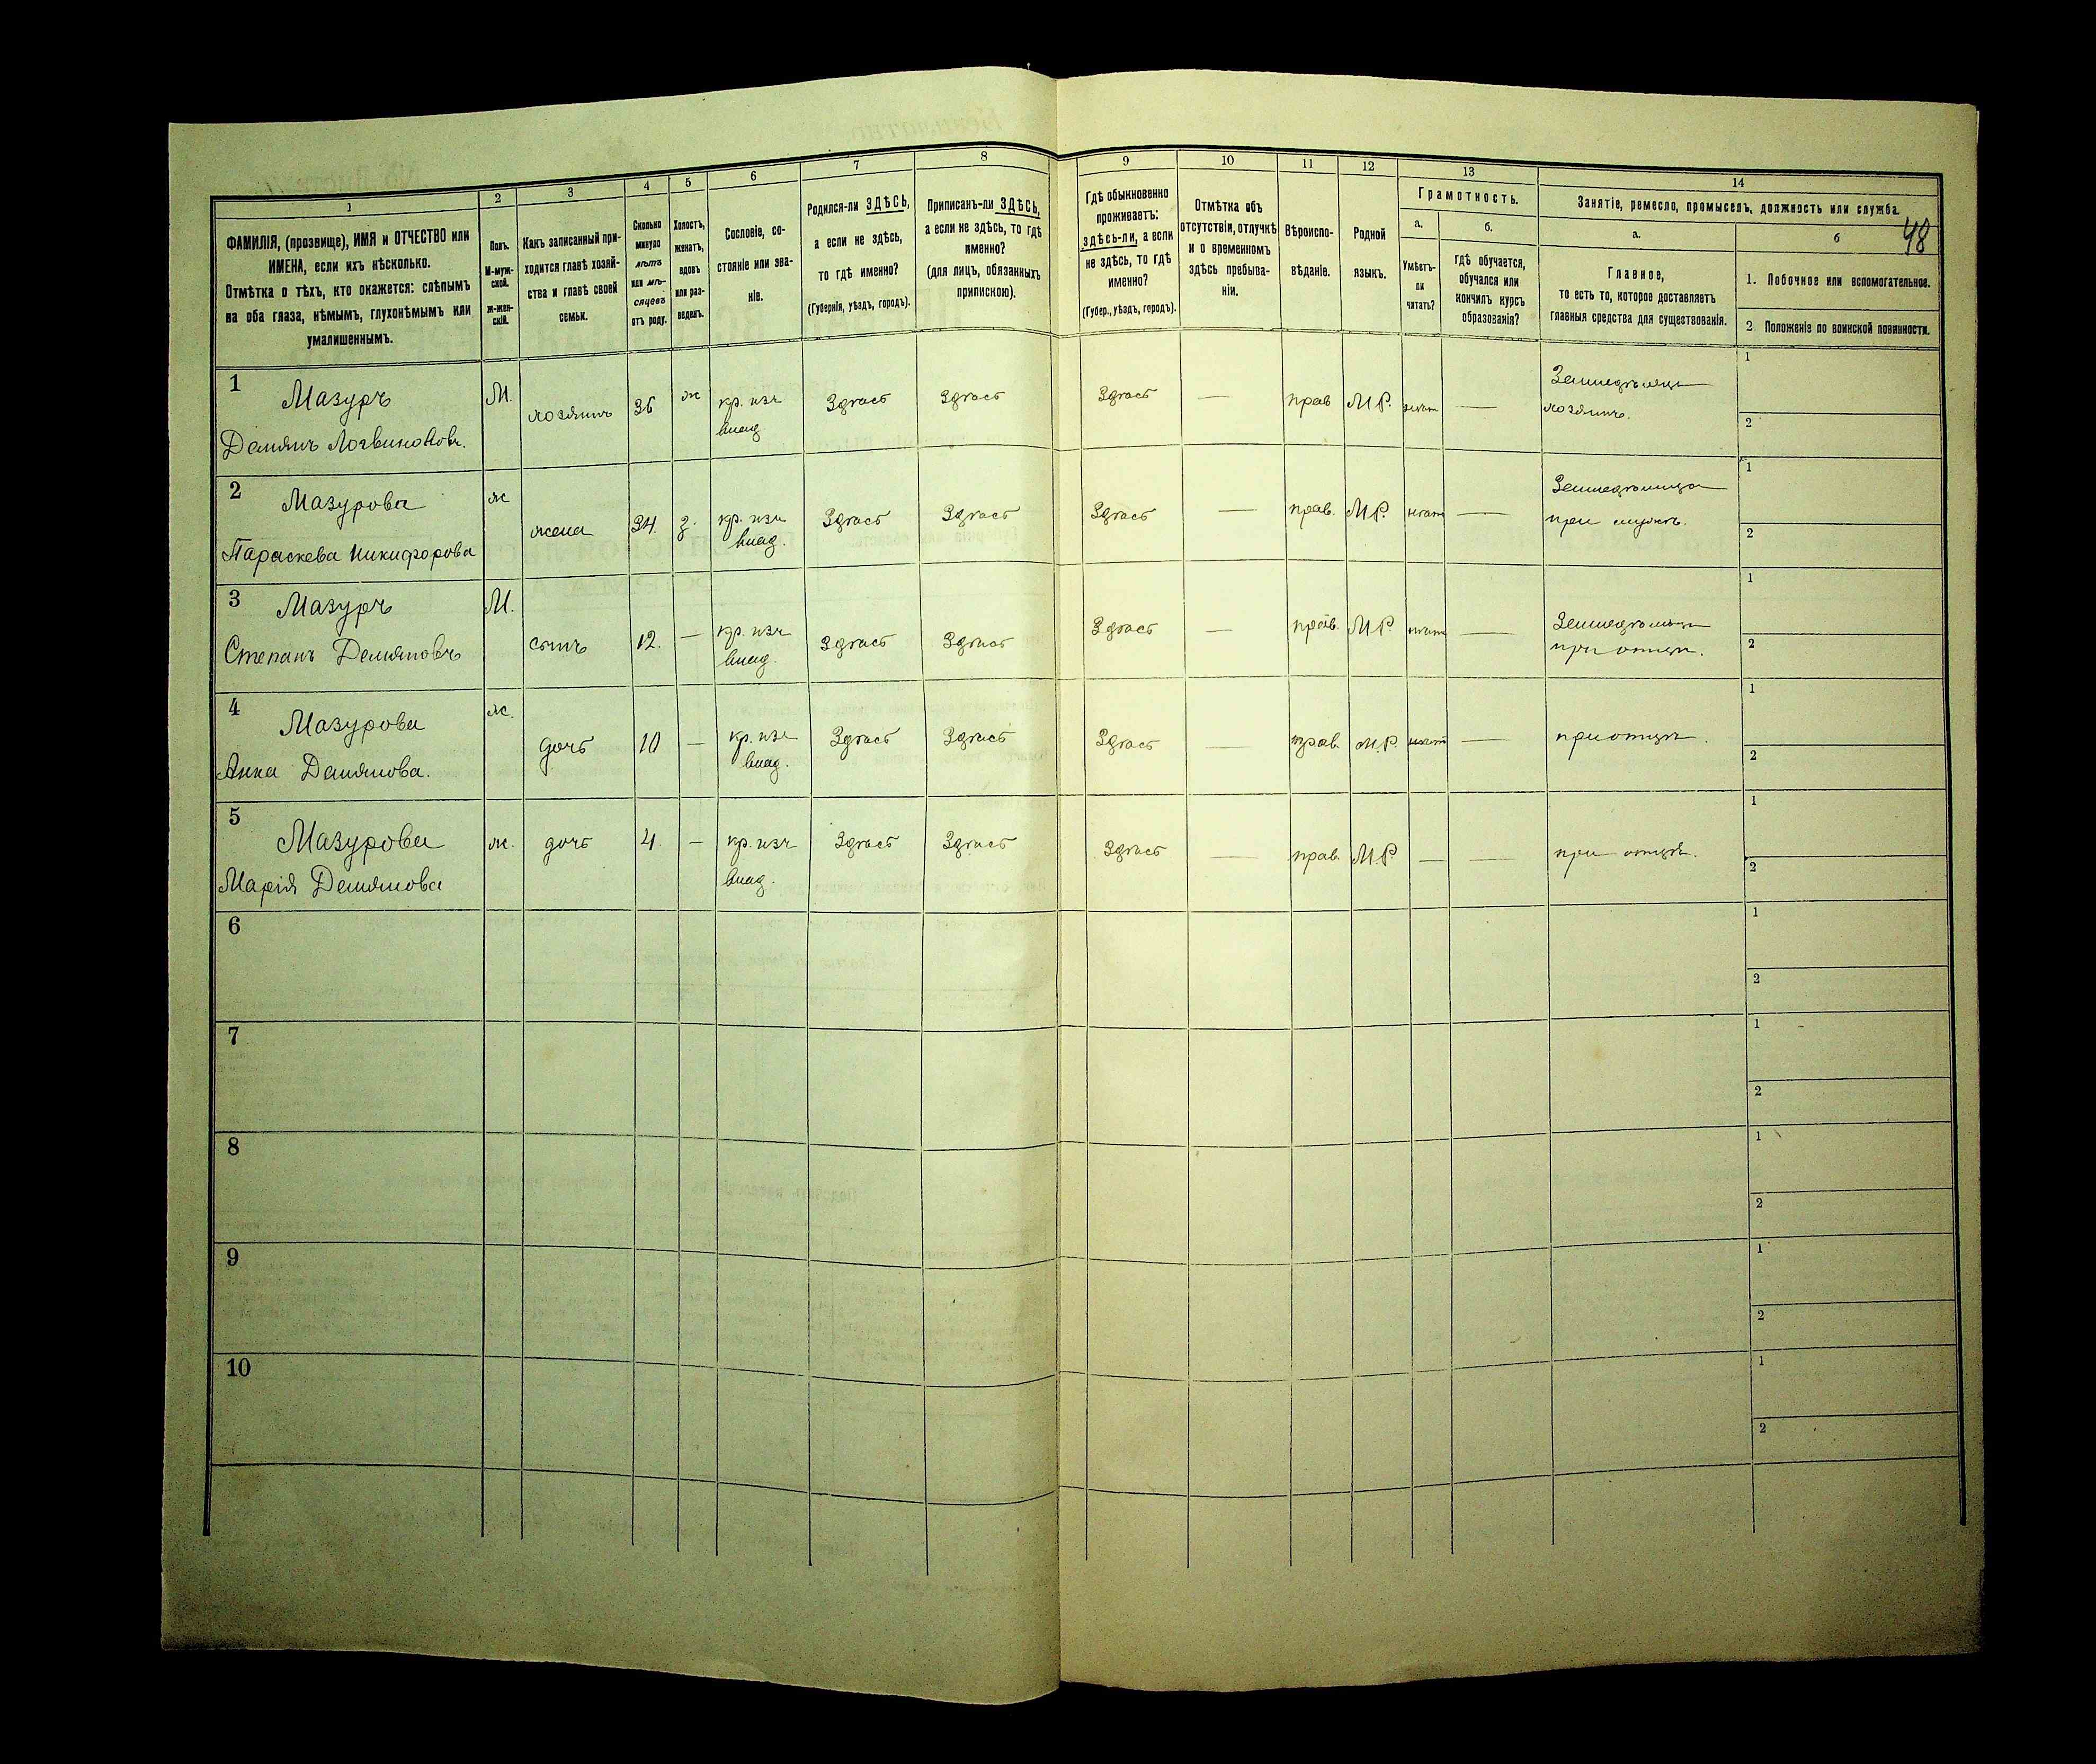 48
1
ФАМИЛІЯ, (прозвище), ИМЯ и ОТЧЕСТВО или
ИМЕНА, если ихъ нѣсколько.
Отмѣтка о тѣхъ, кто окажется: слѣпымъ
на оба глаза, нѣмымъ, глухонѣмымъ или
умалишеннымъ.
2
Полъ.
М-муж-
ской.
Ж-жен-
скій.
3
Какъ записанный при-
ходится главѣ хозяй-
ства и главѣ своей
семьи.
4
Сколько
минуло
лѣтъ
или мѣ-
сяцевъ
отъ роду.
5
Холостъ,
женатъ,
вдовъ
или раз-
веденъ.
6
Сословіе, со-
стояніе или зва-
ніе.
7
Родился-ли ЗДѢСЬ,
а если не здѣсь,
то гдѣ именно?
(Губернія, уѣздъ, городъ).
8
Приписанъ-ли ЗДѢСЬ,
а если не здѣсь, то гдѣ
именно?
(для лицъ, обязанныхъ
припискою).
9
Гдѣ обыкновенно
проживаетъ:
здѣсь-ли, а если
не здѣсь, то гдѣ
именно?
(Губер., уѣздъ, городъ).
10
Отмѣтка объ
отсутствіи, отлучкѣ
и о временномъ
здѣсь пребыва-
ніи.
11
Вѣроиспо-
вѣданіе.
12
Родной
языкъ.
13
Грамотность.
а.
Умѣетъ-
ли
читать?
б.
гдѣ обучается,
обучался или
кончилъ курсъ
образованія?
14
Занятіе, ремесло, промыселъ, должность или служба.
а.
Главное,
то есть то, которое доставляетъ
главныя средства для существованія.
б
1. Побочное или вспомогательное.
2 Положеніе по воинской повинности.
1 Мазуръ
Демянъ Логвиновъ.
М.
хозяинъ
36
ж
кр. изъ
влад.
Здѣсь
Здѣсь
Здѣсь
—
прав
М.Р.
—
Земледѣлецъ
хозяинъ.
1
2
2 Мазурова
Параскева Никифорова
ж
жена
34
з.
кр. изъ
влад.
Здѣсь
Здѣсь
Здѣсь
—
прав.
М.Р.
—
при мужѣ.
1
2
3 Мазуръ
Степанъ Демяновъ
М.
сынъ
12.
—
кр. изъ
влад.
Здѣсь
Здѣсь
Здѣсь
—
прав.
М.Р.
—
при отцѣ.
1
2
4 Мазурова
Анна Демянова.
ж.
дочь
10
—
кр. изъ
влад.
Здѣсь
Здѣсь
Здѣсь
—
прав.
М.Р.
—
при отцѣ.
1
2
5 Мазурова
Марія Демянова
ж.
дочь
4
—
кр. изъ
влад.
Здѣсь
Здѣсь
Здѣсь
—
прав.
М.Р.
—
—
при отцѣ.
1
2
6
1
2
7
1
2
8
1
2
9
1
2
10
1
2